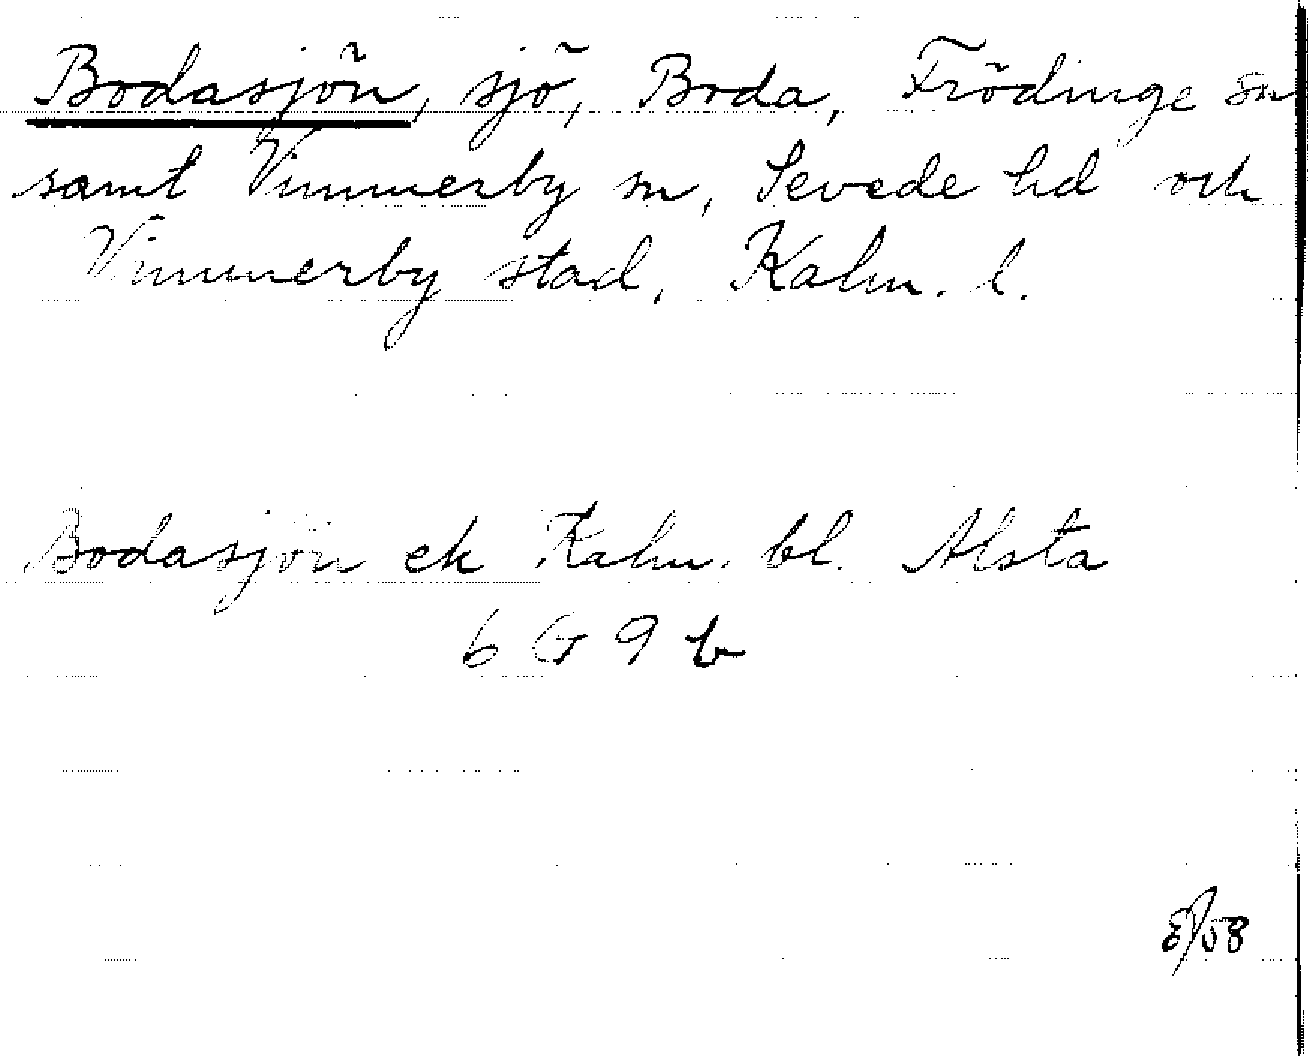 Bodasjön, sjö, Boda, Frödinge sn
samt Vimmerby sn, Sevede hd och
Vimmerby stad, Kalm. l.
Bodasjön ek Kalm. bl. Alsta
6 G 9 b
E/58